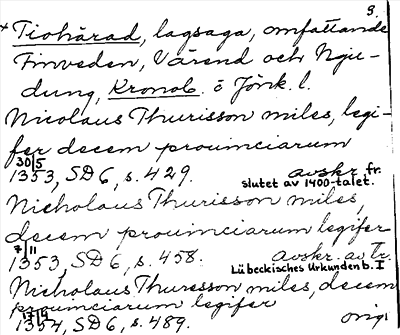 3.
* Tiohärad, lagsaga, omfattande
Finveden, Värend och Nju-
dung, Kronob. ö Jönk. l.
Nicolaus Thurisson miles, legi-
fer decem prouinciarum
30/5
1353, SD 6, s. 429. avskr. fr.
slutet av 1400-talet.
Nicholaus Thurisson miles,
decem prouinciarum legifer
7/11
1353, SD 6, s. 458. Avskr. av tr.
Lübeckisches Urkundenb. I
Nicholaus Thuresson miles, decem
prouinciarum legifer
1354, SD 6, s. 489. orig.